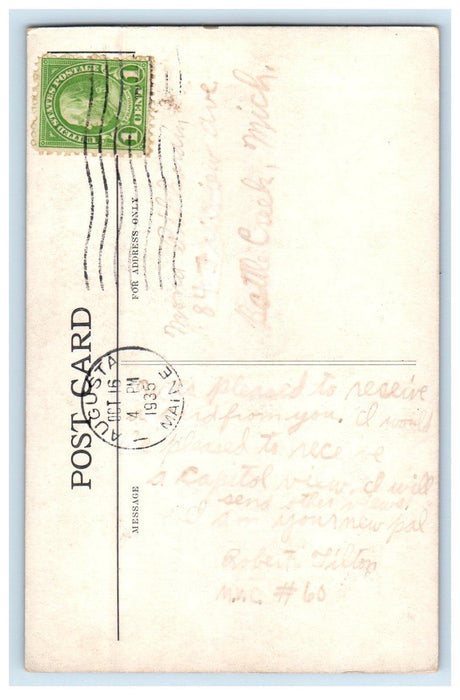 UNITED STATES POSTAGE
1 CENT 1
AUGUSTA
OCT 16
4 PM
1935
MAINE
POST CARD
FOR ADDRESS ONLY
84 Ave
Mich.
MESSAGE
pleased to receive
from you. I would
pleased to receive
a Capitol view. I will
send other views.
I am your new pal
Robert Tilton
#60